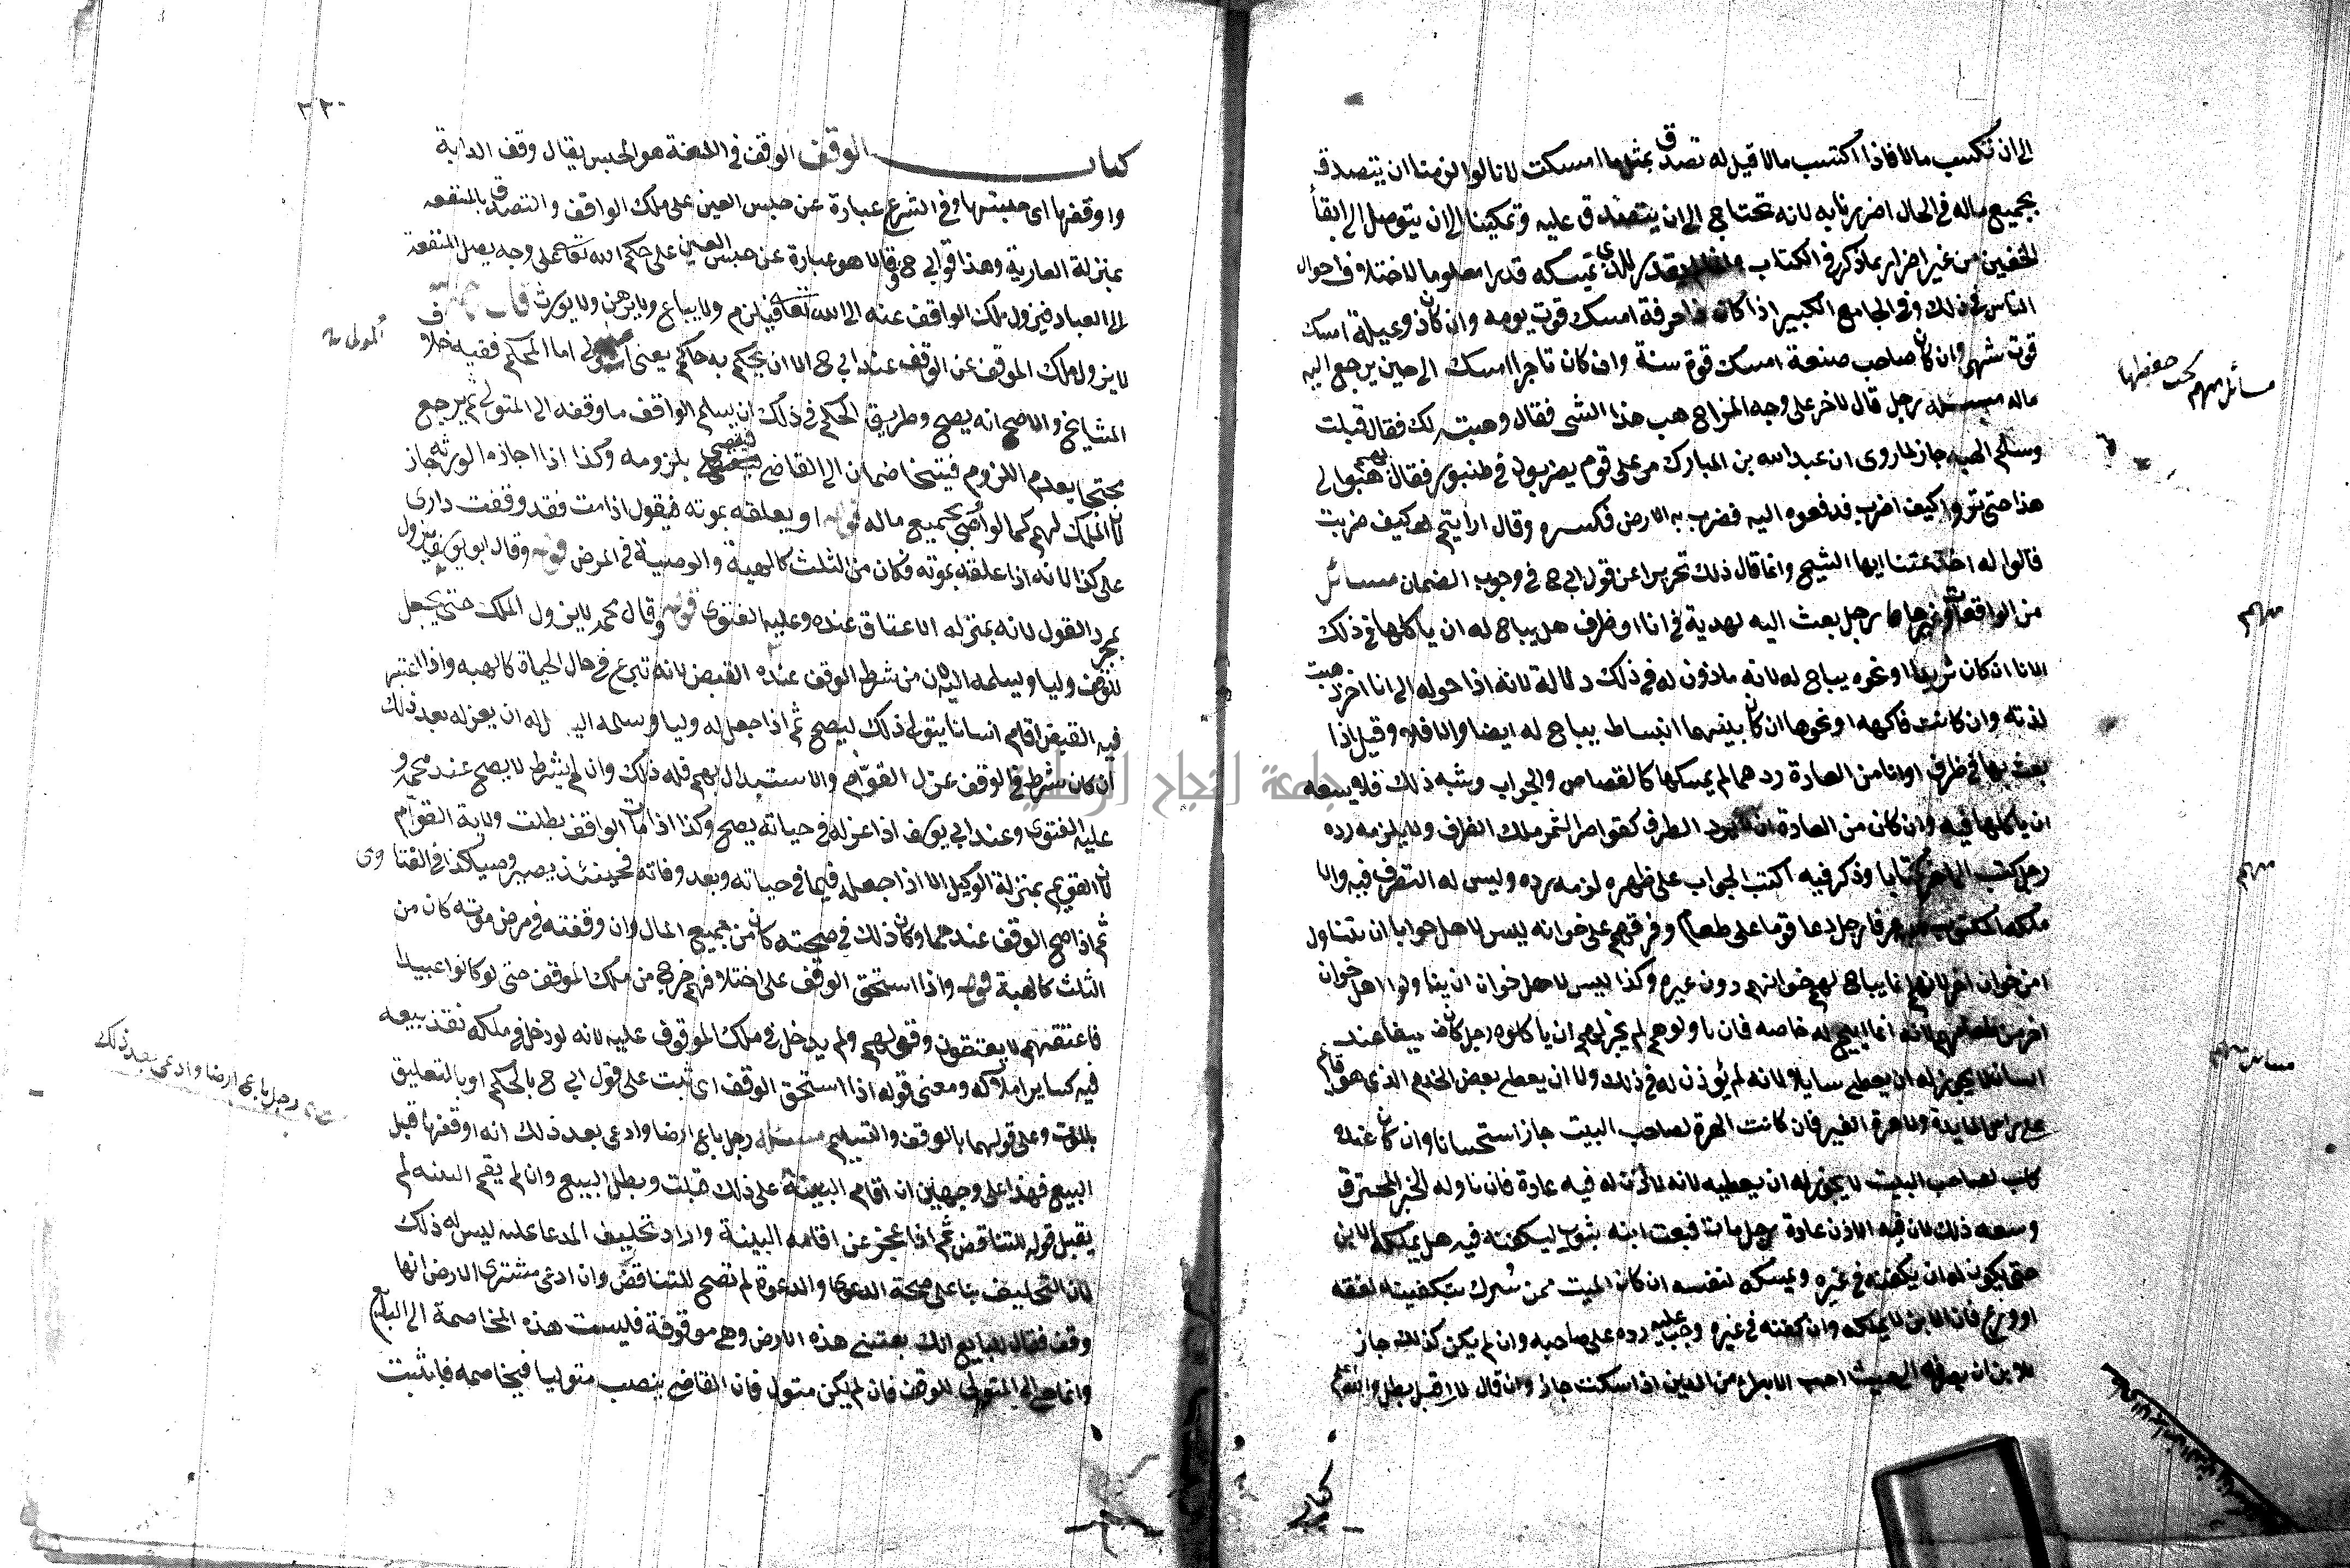 الى ان تكسب مالا فاذا اكتسب مالا قيل له تصدق بمثل ما امسكت لانا لو الزمنا ان يتصدق
بجميع ماله في الحال اضررنا به لانه يحتاج الى ان يتصدق عليه وتمكينا الى ان يتوصل الى ابقأ
الحقين من غير اضرار بما ذكر في الكتاب يقدر للذي تمسكه قدرا معلوما لاختلاف احوال
الناس في ذلك وفي الجامع الكبير اذا كان ذا حرفة امسك قوت يومه وان كان ذو عيلة امسك
قوت شهر وان كان صاحب صنعة امسك قوة سنة وان كان تاجرا امسك الى حين يرجع اليه
ماله مسئله رجل قال لاخر على وجه المزاح هب هذا الشى فقال وهبته لك فقال قبلت
وسلم الهبه جاز لما روى ان عبد الله بن المبارك مر على قوم يضربون في طنبور فقال لهم هبوا لى
هذا حتى تروا كيف اضرب فدفعوه اليه فضرب به الارض فكسره وقال ارايتم كيف ضربت
قالوا له اخدعتنا ايها الشيخ وانما قال ذلك تحريرا عن قول ابي ح في وجوب الضمان مسائل
من الواقعات وغيرها رجل بعث اليه بهدية في انا او ظرف هل يباح له ان ياكلها في ذلك
الانا ان كان ثريدا او نحوه يباح له لانه ماذون له في ذلك دلالة لانه اذا حوله الى انا اخر ذهبت
لذته وان كانت فاكهه او نحوها ان كان بينهما انبساط يباح له ايضا والا فلا وقيل اذا
بعث بها في ظرف او انا من العادة ردهما لم يمسكها كالقصاص والجراب وشبه ذلك فلا يسعه
ان ياكلها فيه وان كان من العادة ان لا يرد الظرف كقواصر الثمر ملك الظرف ولا يلزمه رده
رجل كتب الى اخر كتابا وذكر فيه اكتب الجواب على ظهره لزمه رده وليس له التصرف فيه والا
ملكه المكتوب عرفا رجل دعا قوما على طعام وفرقهم على خوانه ليس لاهل خوان ان يتناول
من خوان اخر لانهم انما يباح لهم خوانهم دون غيره وكذا ليس لاهل خوان ان يناولوا اهل خوان
اخر من طعامهم لانه انما ابيح له خاصه فان ناولوهم لم يجز لهم ان ياكلوه رجل كان ضيفا عند
انسان لا يجوز له ان يعطى سايلا لانه لم يؤذن له في ذلك ولا ان يعطى بعض الخدم الذي هو قايم
على راس المايدة ولا هرة الغير فان كانت الهرة لصاحب البيت جاز استحسانا وان كان عنده
كلب لصاحب البيت لا يجوز له ان يعطيه لانه لا اذن له فيه عادة فان ناوله الخبز المحترق
وسعه ذلك لان فيه الاذن عادة رجل مات فبعث ابنه بثوب ليكفنه فيه هل يملكه الابن
حتى يكون له ان يكفنه في غيره ويمسكه لنفسه ان كان الميت ممن تبرك بتكفينه لفقه
او ورع فان الابن لا يملكه وان كفنه في غيره وجب عليه رده على صاحبه وان لم يكن كذلك جاز
للابن ان يصرفه الى حيث احب الابراء من الدين اذا سكت جاز وان قال لا اقبل بطل والله اعلم
مسائل مهم يجب حفظها
مهم
مهم
مسائل مهم
كتاب
٣٣٠
كتاب الوقف الوقف في اللغة هو الحبس يقال وقف الدابة
واوقفها اى حبسها وفي الشرع عبارة عن حبس العين على ملك الواقف والتصدق بالمنفعه
بمنزلة العارية وهذا قول ابي ح وقالا هو عبارة عن حبس العين على حكم الله تعا على وجه يصل المنفعة
الى العباد فيزول ملك الواقف عنه الى الله تعا فيلزم ولا يباع ولا يرهن ولا يورث قال
لا يزول ملك الموقف عن الوقف عند ابي ح الا ان يحكم به حاكم يعنى المولى اما المحكم ففيه خلاف
المشايخ والاصح انه يصح وطريق الحكم في ذلك ان يسلم الواقف ما وقفه الى المتولى ثم يرجع
محتجا بعدم اللزوم فيتخاصمان الى القاضى فيقضى بلزومه وكذا اذا اجازه الورثه جاز
لان الملك لهم كما لو اوصى بجميع ماله قوله او يعلقه بموته فيقول اذا مت فقد وقفت دارى
على كذا لانه اذا علقه بموته فكان من الثلث كالهبة والوصية في المرض قوله وقال ابو يوسف يزول
بمجرد القول لانه بمنزله الاعتاق عنده وعليه الفتوى قوله وقال محمد لا يزول الملك حتى يجعل
للوقف وليا ويسلمه اليه لان من شرط الوقف عنده القبض لانه تبرع في حال الحياة كالهبه واذا اعتبر
فيه القبض اقام انسانا يتولى ذلك ليصح ثم اذا جعل له وليا وسلمه اليه له ان يعزله بعد ذلك
ان كان شرط في الوقف عزل القوام والاستبدال بهم فله ذلك وان لم يشرط لا يصح عند محمد و
عليه الفتوى وعند ابي يوسف اذا عزله في حياته يصح وكذا اذا مات الواقف بطلت ولاية القوام
لان القيم بمنزلة الوكيل الا اذا جعله قيما في حياته وبعد وفاته فحينئذ يصير وصيا كذا في الفتاوى
ثم اذا صح الوقف عندهما وكان ذلك في صحته كان من جميع المال وان وقفته في مرض موته كان من
الثلث كالهبة قوله واذا استحق الوقف على اختلافهم خرج من ملك الموقف حتى لو كانوا عبيدا
فاعتقهم لا يعتقون وقوله ولم يدخل في ملك الموقوف عليه لانه لو دخل في ملكه نفذ بيعه
فيه كساير املاكه ومعنى قوله اذا استحق الوقف اى ثبت على قول ابي ح بالحكم او بالتعليق
بالموت وعلى قولهما بالوقف والتسليم مسئله رجل باع ارضا وادعى بعد ذلك انه اوقفها قبل
البيع فهذا على وجهين ان اقام البينة على ذلك قبلت وبطل البيع وان لم يقم البينه لم
يقبل قوله للتناقض ثم اذا عجز عن اقامه البينة واراد تحليف المدعا عليه ليس له ذلك
لان التحليف بنا على صحة الدعوى والدعوة لم تصح للتناقض وان ادعى مشترى الارض انها
وقف فقال للبايع انك بعتنى هذه الارض وهى موقوفة فليست هذه المخاصمة الى البايع
وانما هى الى المتولى للوقف فان لم يكن متول فان القاضى ينصب متوليا فيخاصمه فان ثبت
المولى
رجل باع ارضا وادعى بعد ذلك
جامعة النجاح الوطنية